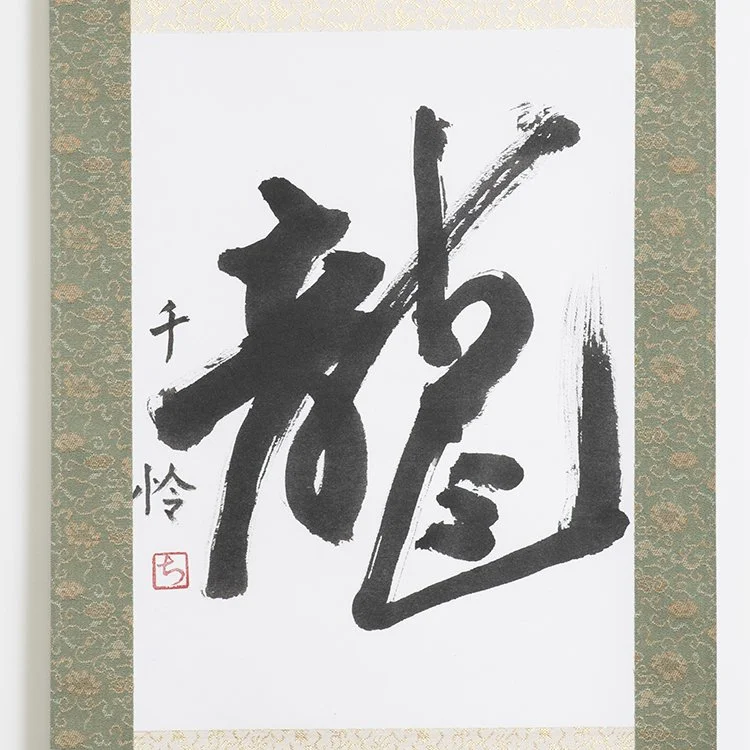 龍
千怜
ち